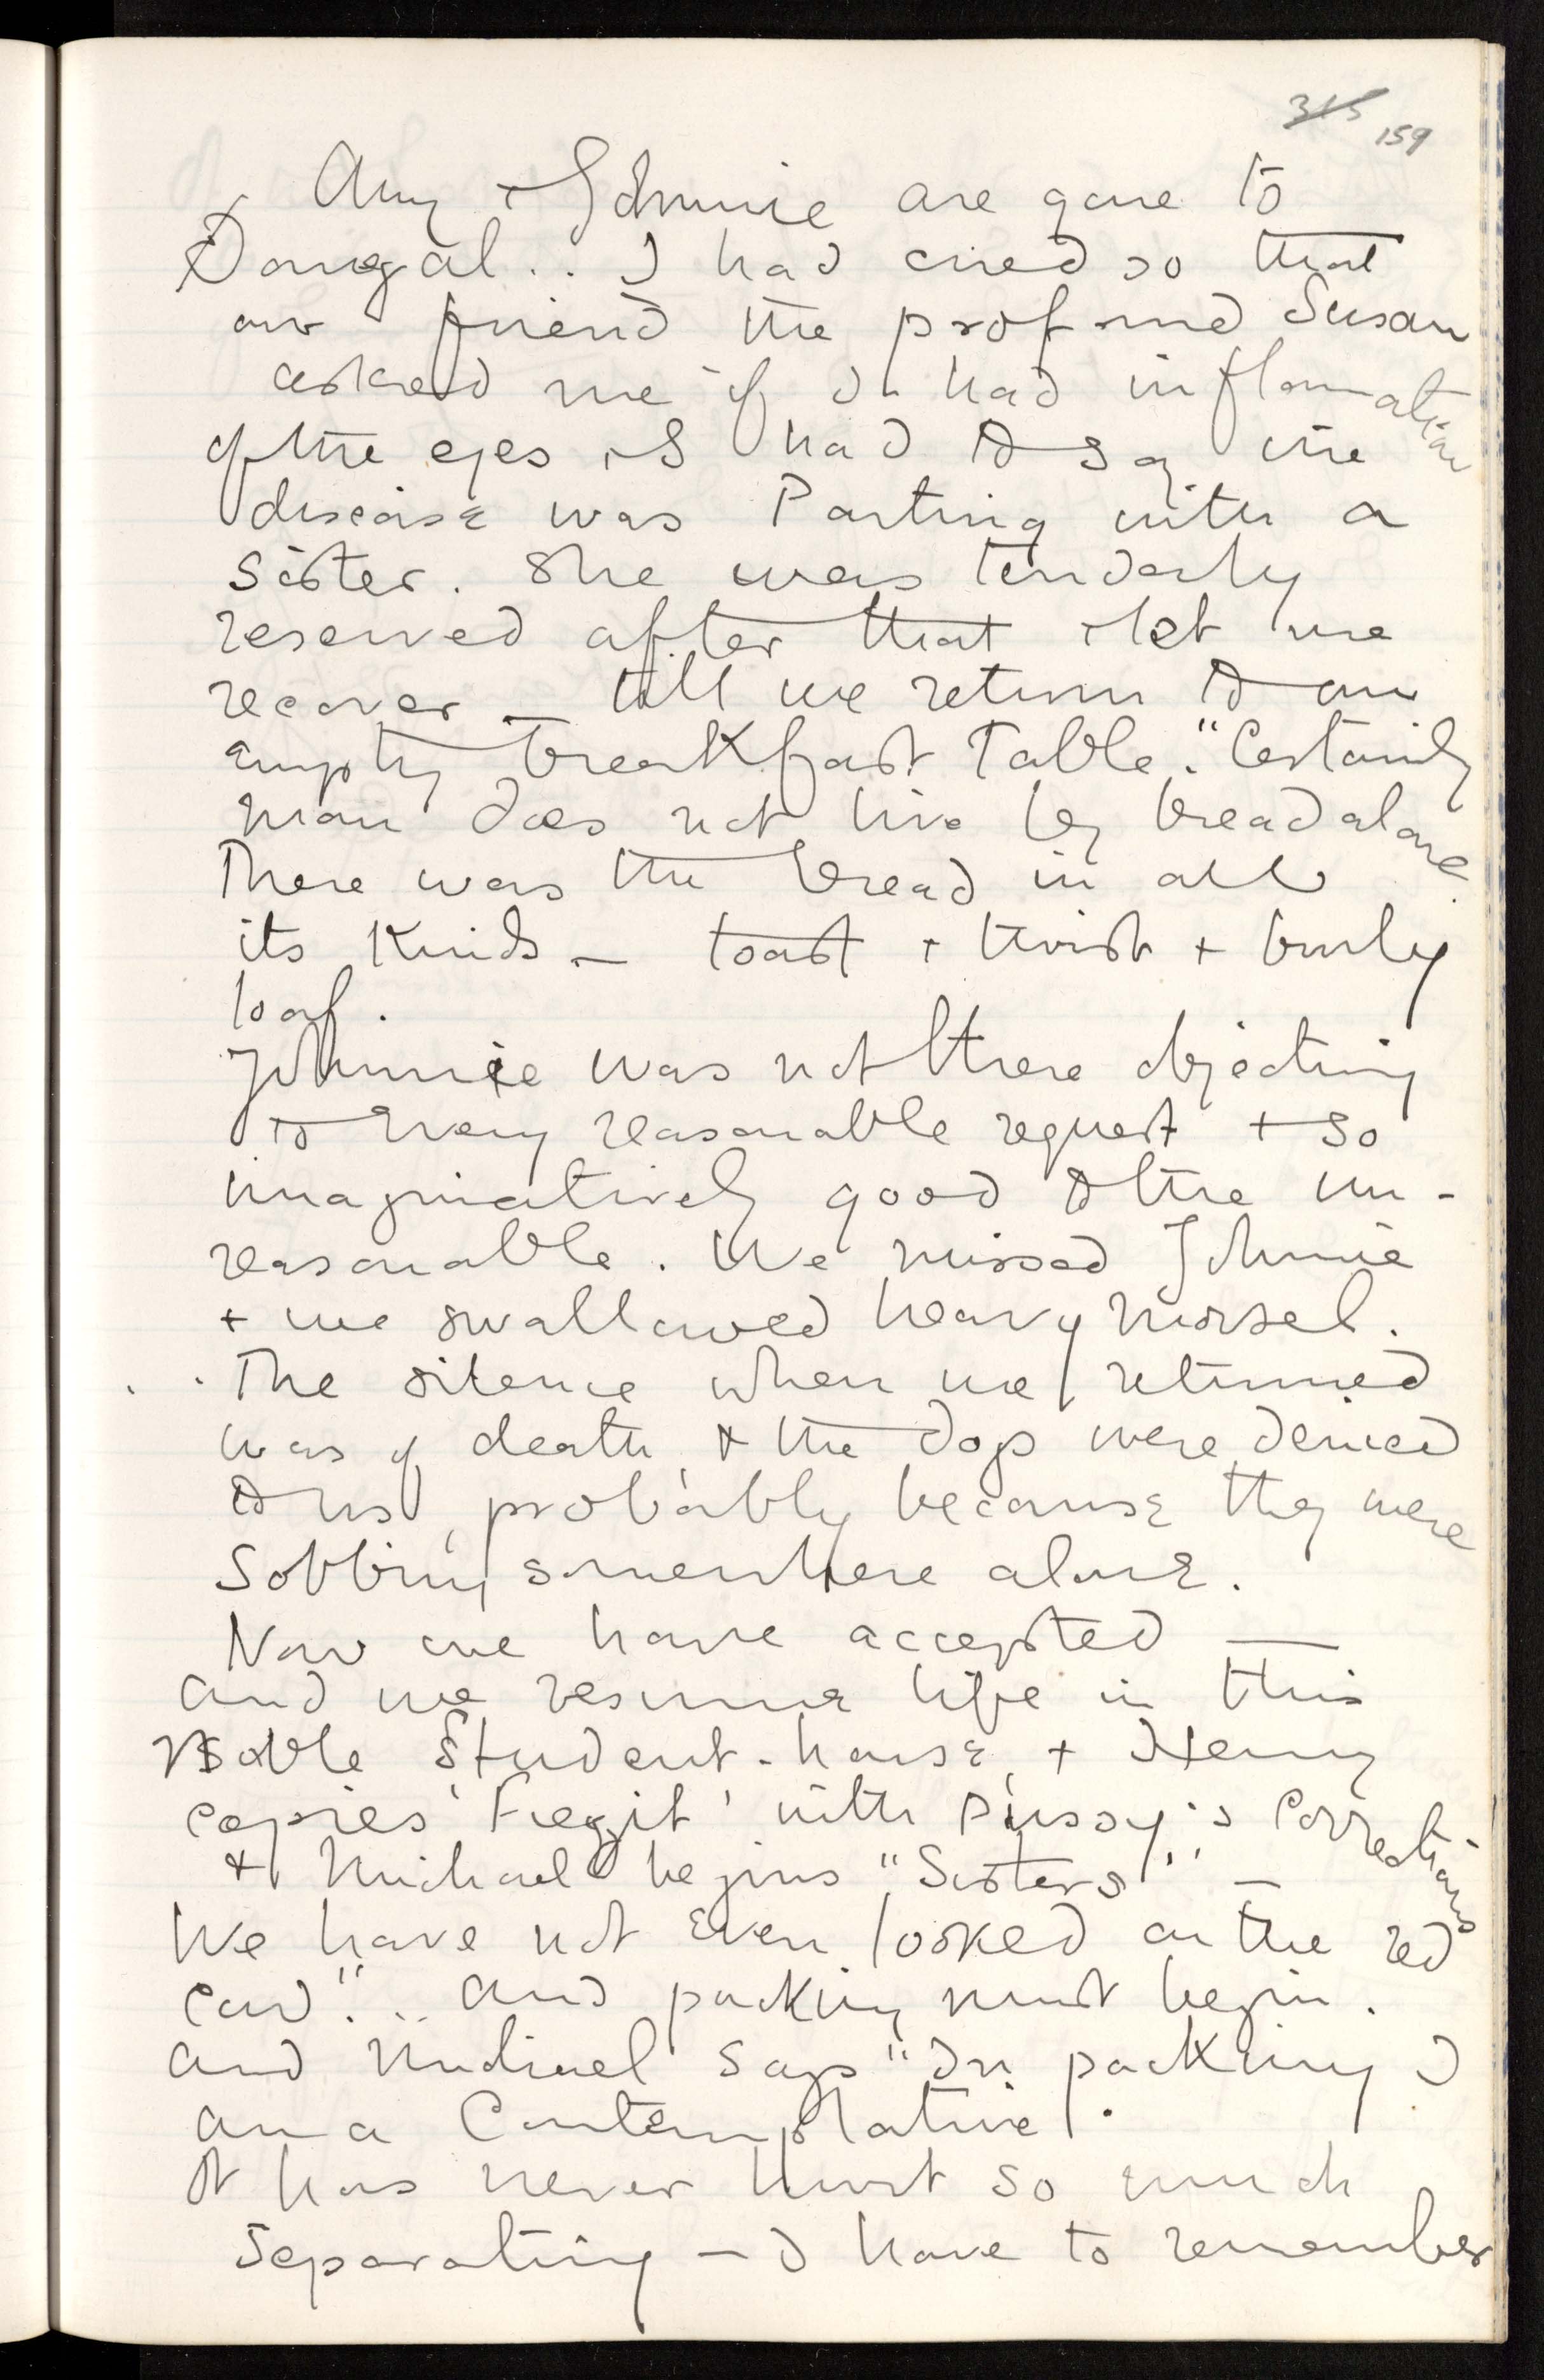 315 159
Amy + Johnnie are gone to
Donegal .. I had cried so that
our friend the profound Susan
asked me if I had inflamation
of the eyes + I had to say the
disease was Parting with a
sister. She was tenderly
reserved after that + let me
recover – till we return to our
empty breakfast Table. "Certainly
man does not live by bread alone.
There was the bread in all
its Kinds – toast + twist + burly
loaf.
Johnnie was not there objecting
to every reasonable request + so
imaginatively good to the un-
reasonable. We missed Johnnie
+ we swallowed heavy morsel.
. . The silence when we returned
was of death, + the dogs were denied
to us, probably because they were
sobbing somewhere alone.
Now we have accepted —
and we resume life in this
noble Student-house, + Henry
copies 'Fregit' with Pussy's corrections
+ Michael begins "Sisters" –
We have not even looked on the red
cow" .. and packing must begin.
and Michael says "In packing I
am a Contemplative".
It has never hurt so much
Separating – I have to remember